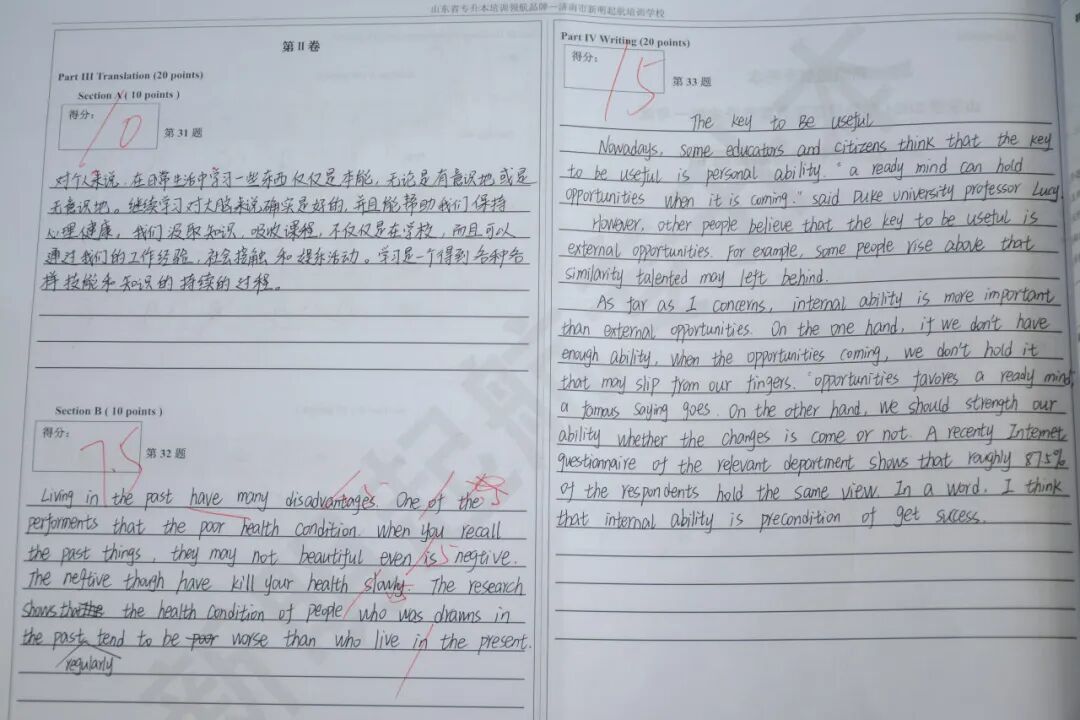 山东省专升本培训领航品牌—济南市新明起航培训学校
第 II 卷
Part III Translation (20 points)
Section A ( 10 points )
得分:
10
第 31 题
对个人来说，在日常生活中学习一些东西仅仅是本能，无论是有意识地或是
无意识地。继续学习对大脑来说确实是好的，并且能帮助我们保持
心理健康，我们汲取知识，吸收课程，不仅仅是在学校，而且可以
通过我们的工作经验，社会接触和娱乐活动。学习是一个得到各种各
样技能和知识的持续的过程。
Section B ( 10 points )
得分:
7.5
第 32 题
Living in the past have many disadvantages. One of the
performents that the poor health condition. When you recall
the past things, they may not beautiful even is negtive.
The negtive though have kill your health slowly. The research
shows the health condition of people who was drawns in
the past tend to be poor worse than who live in the present.
regularly
Part IV Writing (20 points)
得分:
15
第 33 题
The key to Be useful
Nowadays, some educators and citizens think that the key
to be useful is personal ability. "a ready mind can hold
opportunities when it is coming." said Duke university professor Lucy.
However, other people believe that the key to be useful is
external opportunities. For example, some people rise above that
similarity talented may left behind.
As far as I concerns, internal ability is more important
than external opportunities. On the one hand, if we don't have
enough ability, when the opportunities coming, we don't hold it
that may slip from our fingers. "opportunities favores a ready mind,"
a famous saying goes. On the other hand, we should strength our
ability whether the changes is come or not. A recenty Internet
questionnaire of the relevant department shows that roughly 87.5%
of the respondents hold the same view. In a word, I think
that internal ability is precondition of get success.